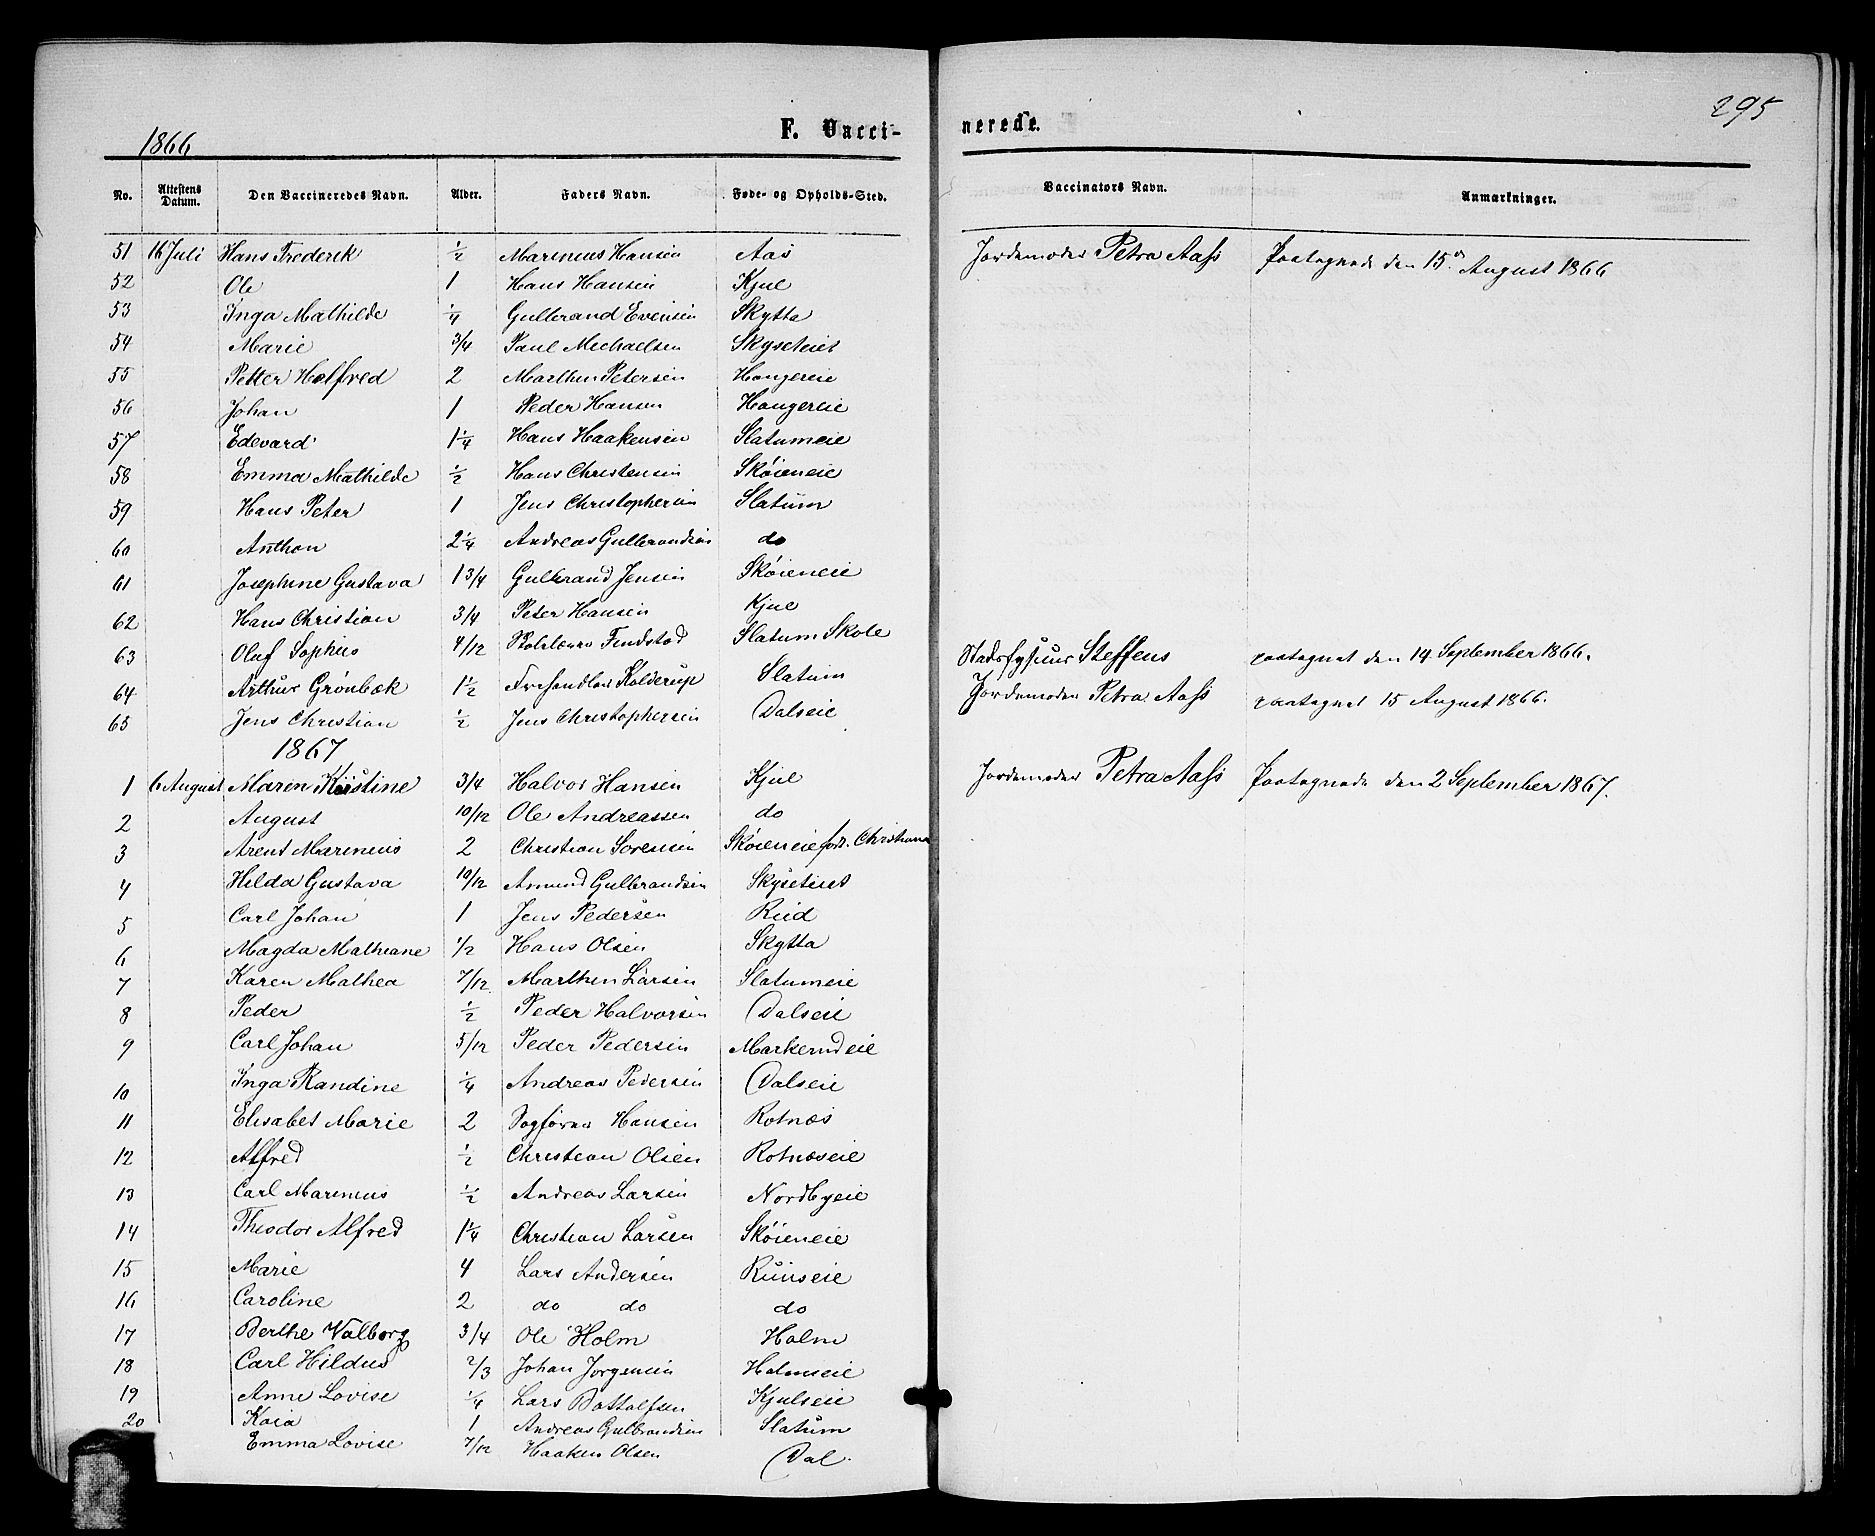 295
1866
F. Vacci- nerede.
No. Attestens Datum. Den Vaccineredes Navn. Alder. Faders Navn. Føde- og Opholds-Sted. Vaccinators Navn. Anmærkninger.
51 16 Juli Hans Frederik ½ Marinius Hansen Aas Jordemoder Petra Aass Paategnede den 15de August 1866
52 Ole 1 Hans Hansen Kjul
53 Inga Mathilde ¼ Gulbrand Evensen Skytta
54 Marie 3/4 Paul Michaelsen Skyseteiet
55 Petter Helfred 2 Marthin Petersen Haugereie
56 Johan 1 Peder Hansen Haugereie
57 Edevard 1¼ Hans Haakensen Slatumeie
58 Emma Mathilde ½ Hans Christensen Skøieneie
59 Hans Peter 1 Jens Christophersen Slatum
60 Anthon 2¼ Andreas Gulbrandsen do
61 Josephine Gustava 1 3/4 Gulbrand Jensen Skøieneie
62 Hans Christian 3/4 Peter Hansen Kjul
63 Oluf Sophus 4/12 Findstad Slatum Skole Stadsfysicus Steffens paategnet den 14 September 1866.
64 Arthur Grønbæk 1½ Kolderup Slatum Jordemoder Petra Aass paategnet 15 August 1866.
65 Jens Christian ½ Jens Christophersen Dalseie
1867
1 6 August Maren Kristine 3/4 Halvor Hansen Kjul Jordemoder Petra Aass Paategnede den 2 September 1867.
2 August 10/12 Ole Andreassen do
3 Arent Marinius 2 Christian Sorensen Skøieneie for. Christiania
4 Hilda Gustava 10/12 Amund Gulbrandsen Skyseteiet
5 Carl Johan 1 Jens Pedersen Ruud
6 Magda Mathiane 1/2 Hans Olsen Skytta
7 Karen Mathea 7/12 Marthin Larsen Slatumeie
8 Peder ½ Peder Halvorsen Dalseie
9 Carl Johan 5/12 Peder Pedersen Markerudeie
10 Inga Randine ¼ Andreas Pedersen Dalseie
11 Elisabet Marie 2 Sagfører Hansen Rotnæs
12 Alfred ½ Christian Olsen Rotnæseie
13 Carl Marinius ½ Andreas Larsen Nordbyeie
14 Theodor Alfred 1¼ Christian Larsen Skøieneie
15 Marie 4 Lars Andersen Ruunseie
16 Caroline 2 do do do
17 Berthe Valborg 3/4 Ole Holm Holm
18 Carl Hildus 2/3 Johan Jorgensen Holmseie
19 Anne Lovise ¼ Lars Bottolfsen Kjulseie
20 Kaia 1 Andreas Gulbrandsen Slatum
Emma Lovise 7/12 Haaken Olsen Dal.